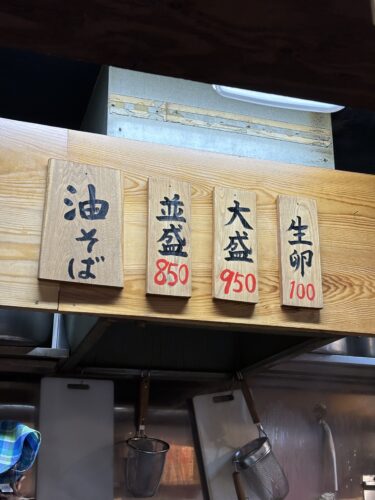 油そば
並盛
850
大盛
950
生卵
100